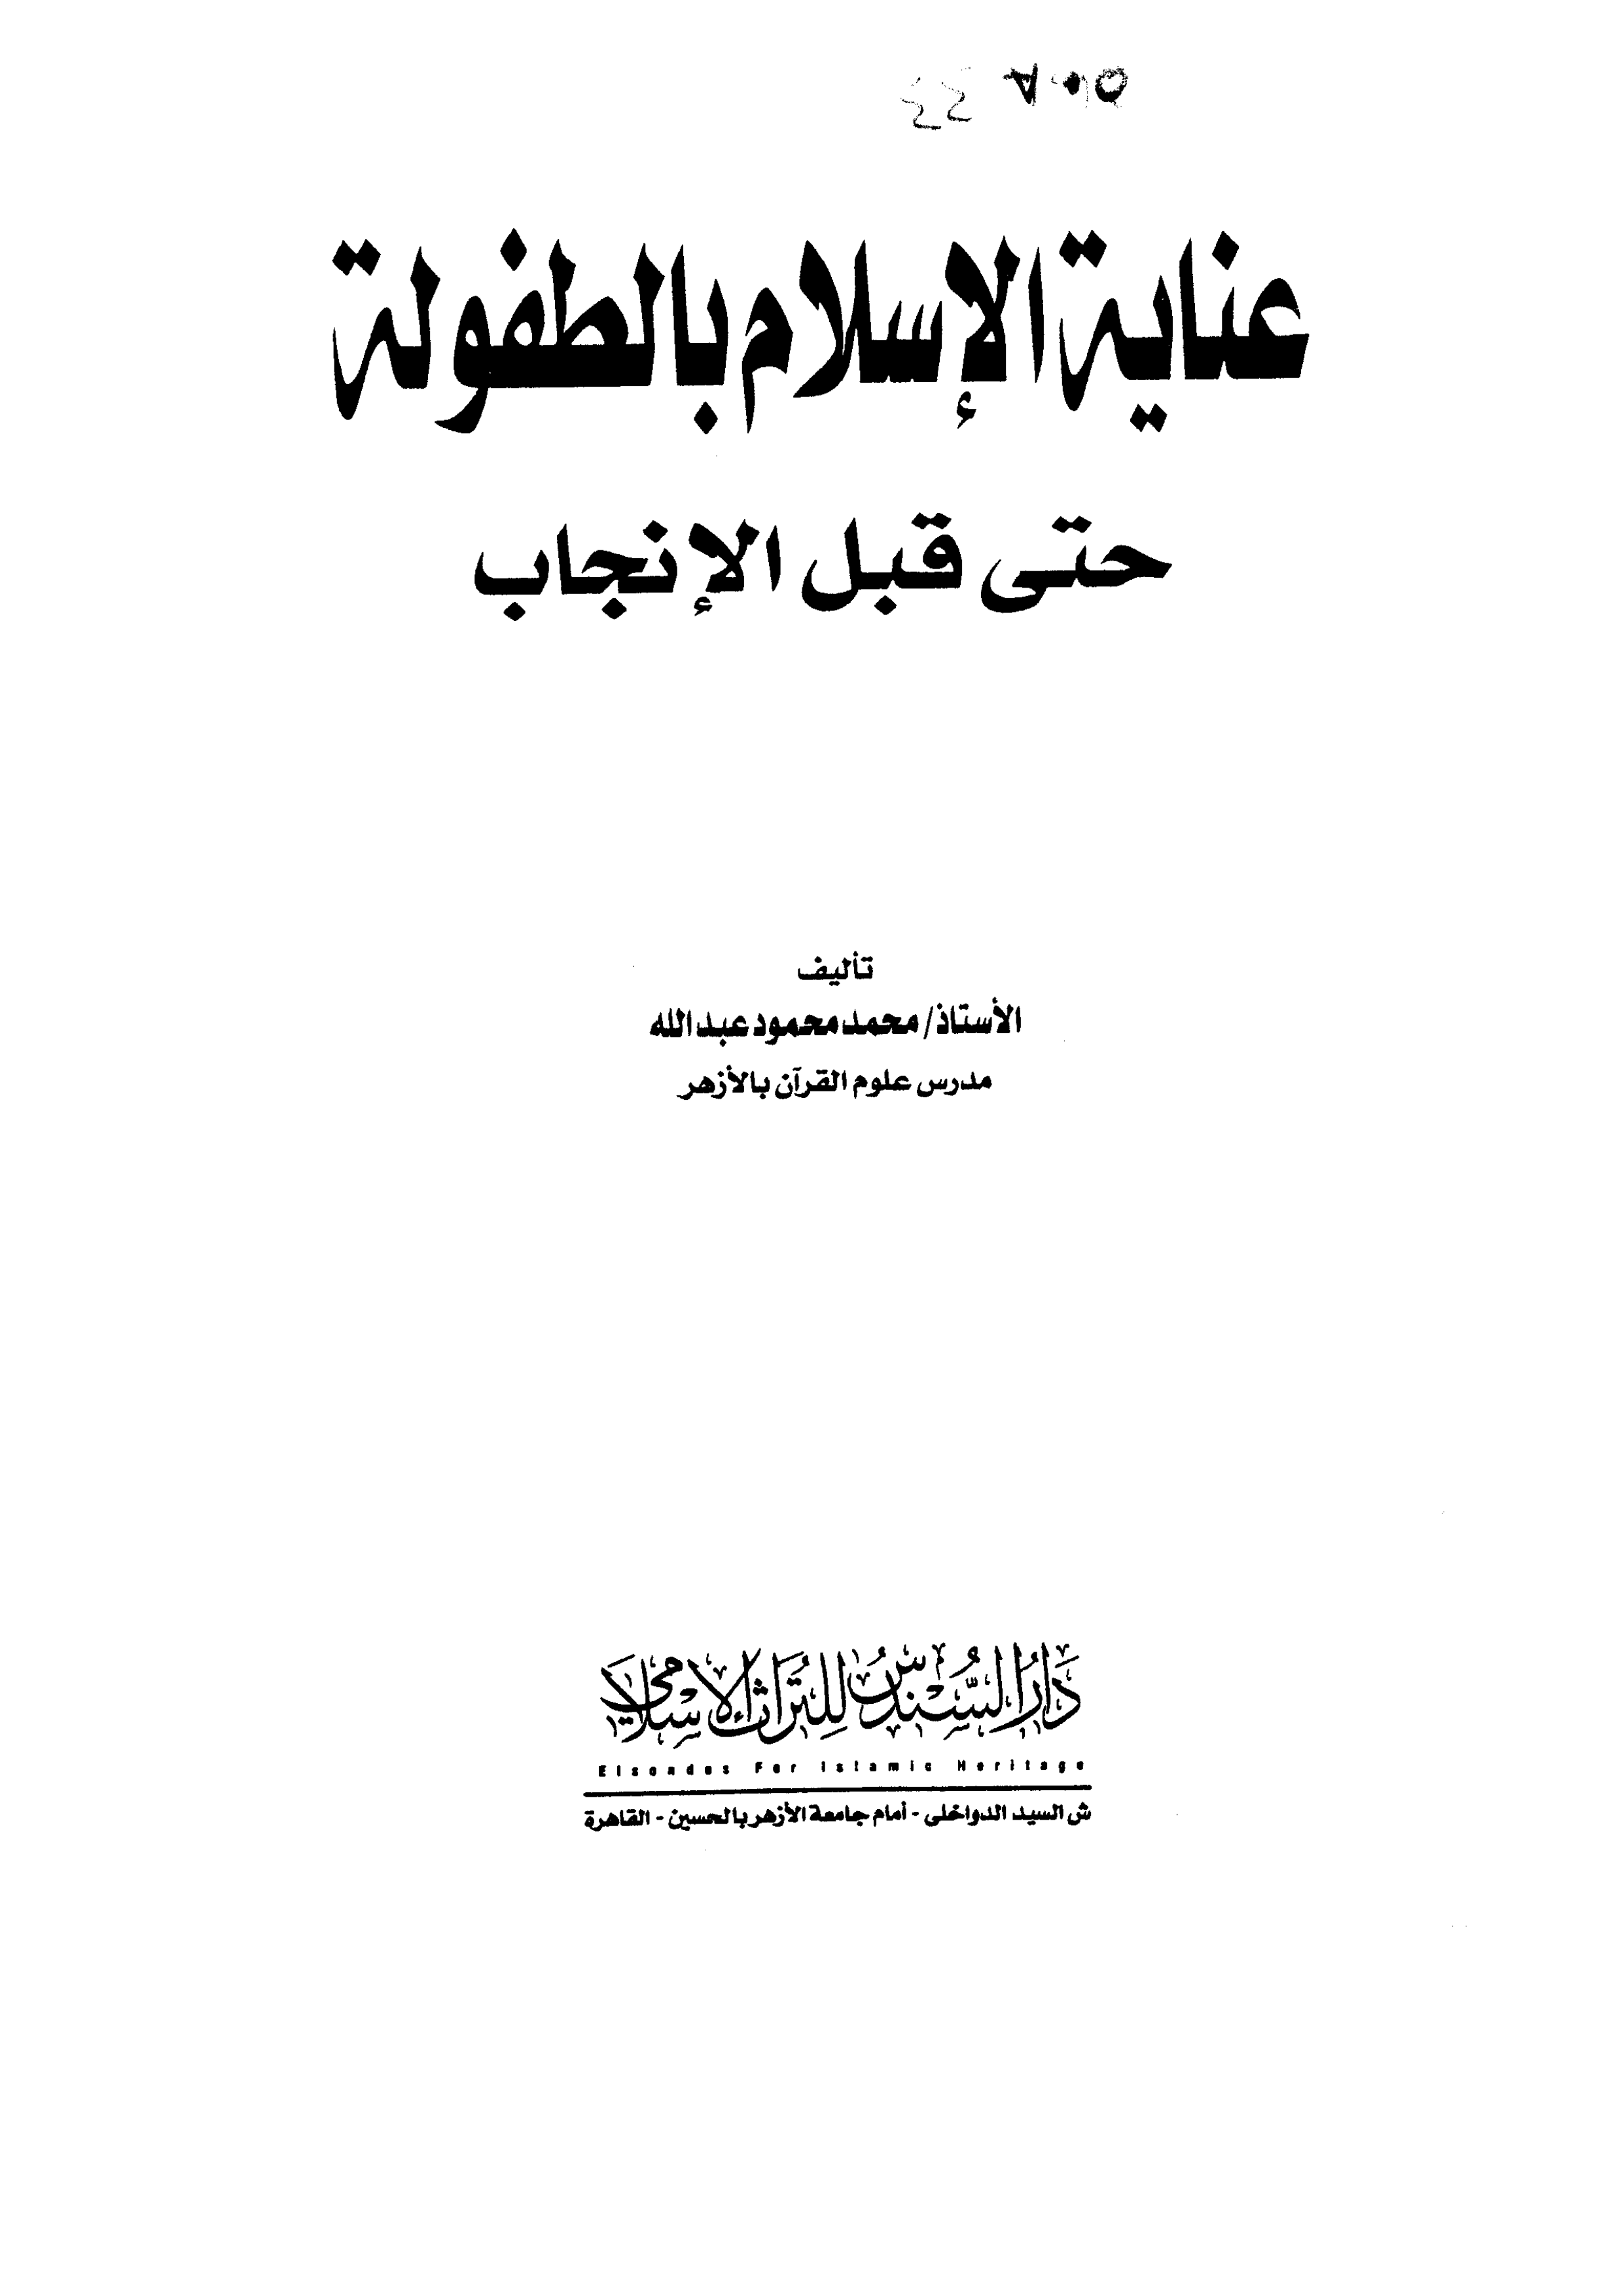 عناية الإسلام بالطفولة
حتى قبل الإنجاب
تأليف
الأستاذ/ محمد محمود عبد الله
مدرس علوم القرآن بالأزهر
دَارُ السُّنْدُسْ لِلتُّرَاثِ الإِسْلَامِي
Elsondos For Islamic Heritage
ش السيد الدواخلى - أمام جامعة الأزهر بالحسين - القاهرة